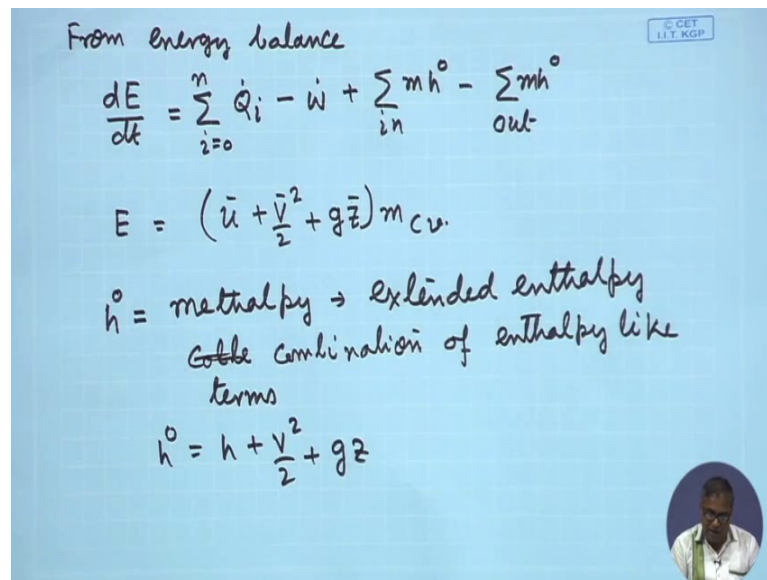 From energy balance
© CET
I.I.T. KGP
dE/dt = Σ_{i=0}^{n} Q̇i - ẇ + Σ_{in} mh° - Σ_{out} mh°
E = (ū + v̄²/2 + gz̄) m cv.
h° = methalpy → extended enthalpy
combination of enthalpy like
terms
h° = h + v²/2 + gz